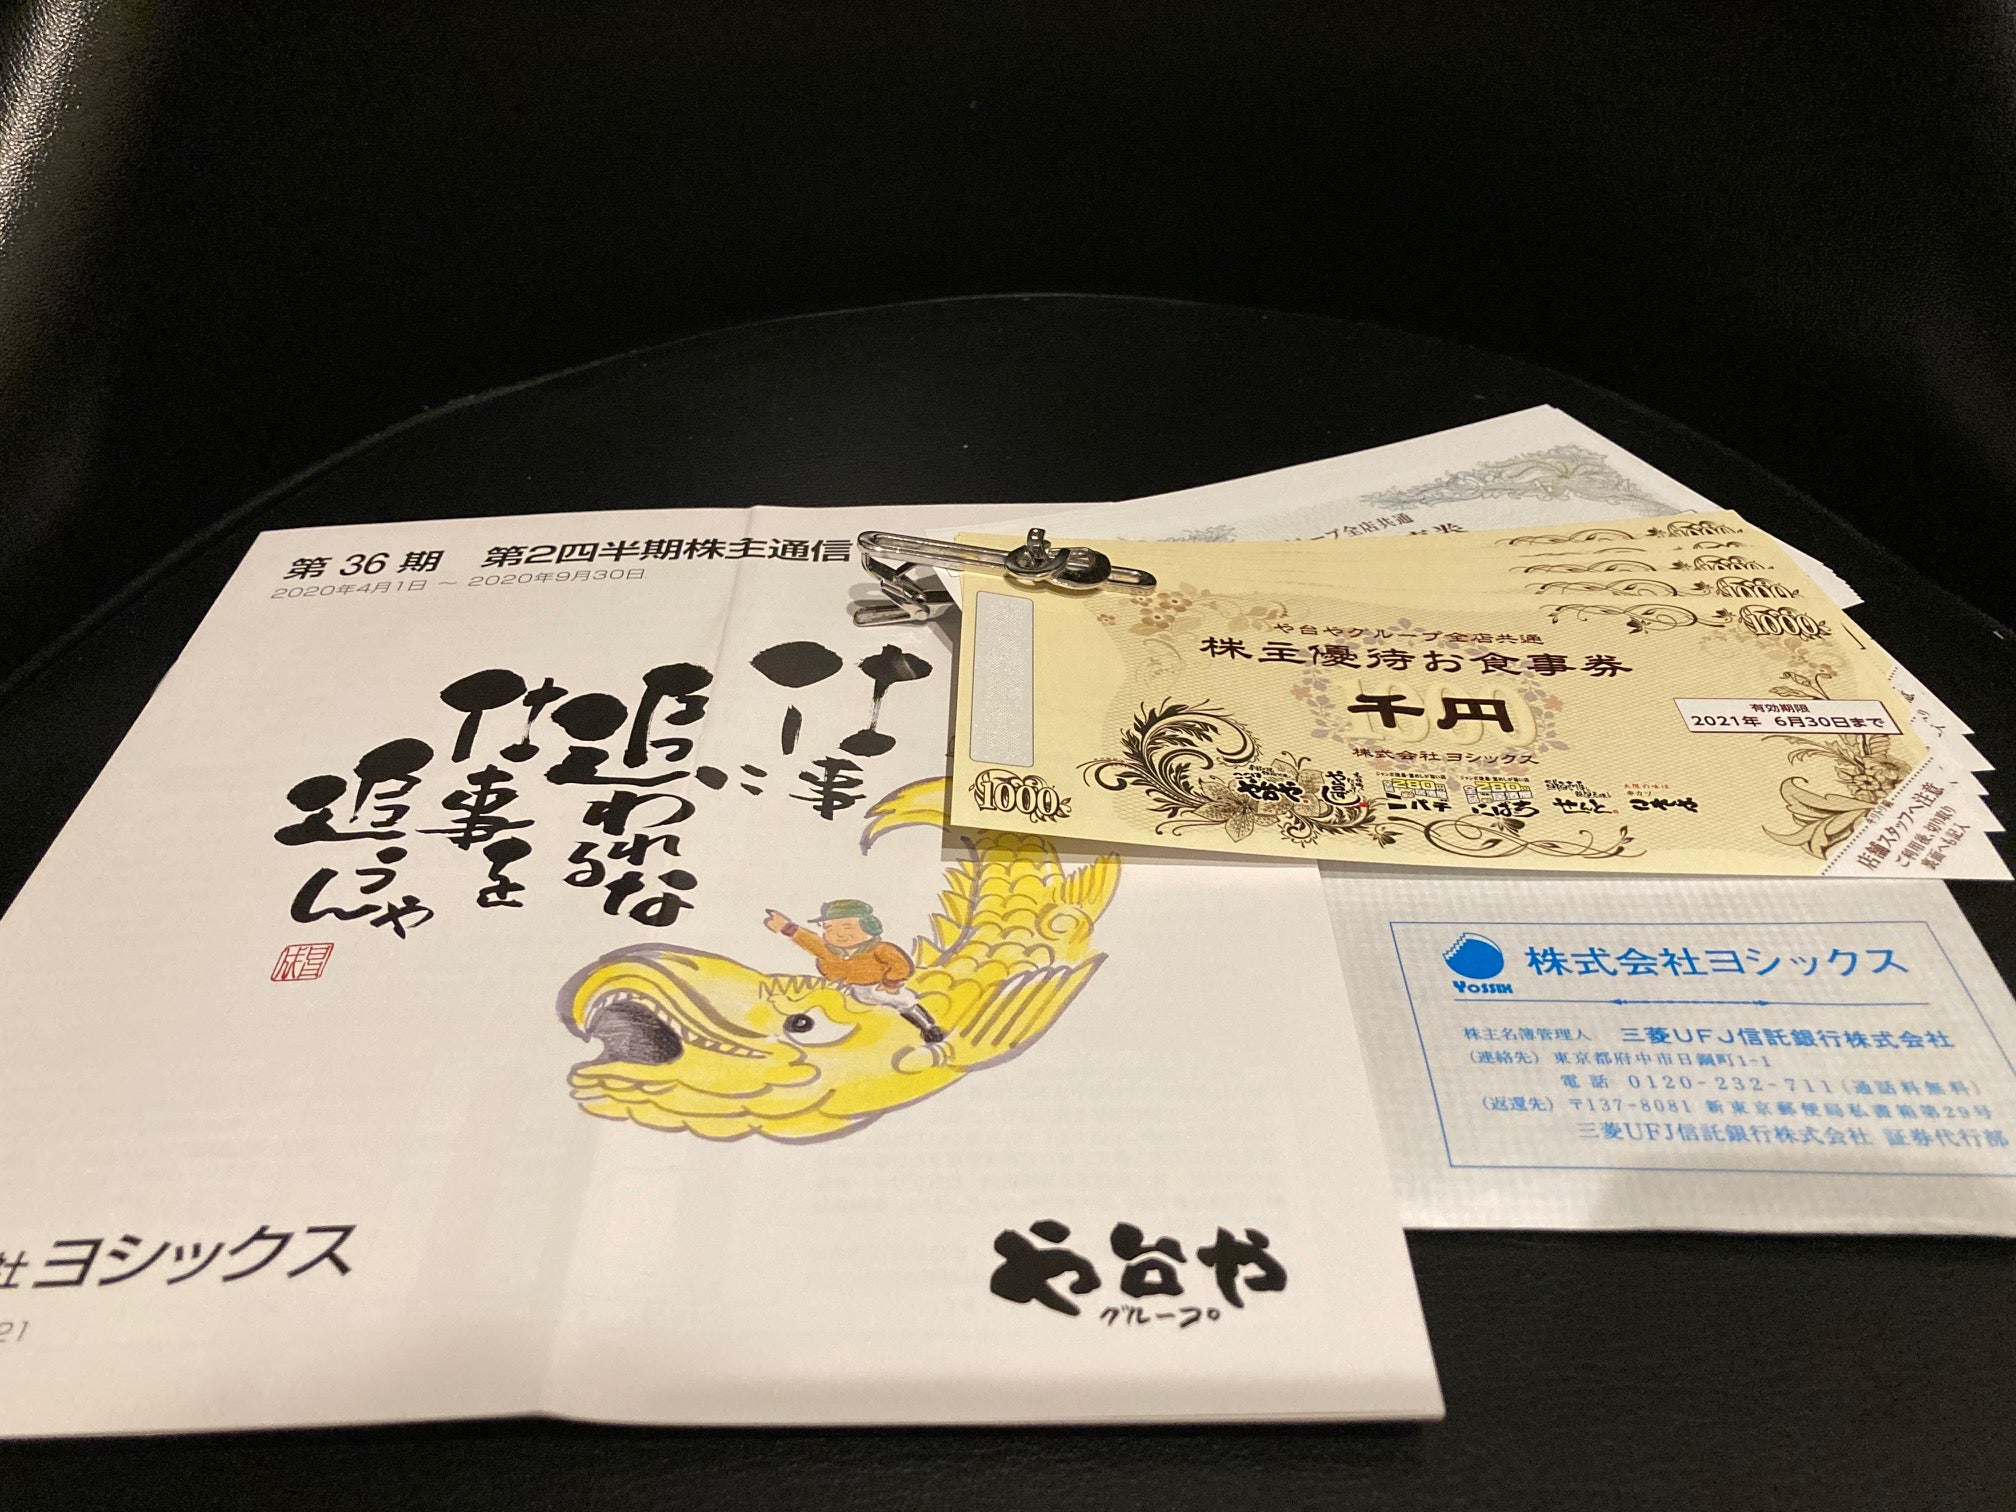 第36期 第2四半期株主通信
2020年4月1日 ～ 2020年9月30日
仕事に
追われるな
仕事を
追うんや
社 ヨシックス
21
や台や
グループ
ープ全店共通
や台やグループ全店共通
株主優待お食事券
千円
株式会社 ヨシックス
有効期限
2021年 6月30日まで
1000
1000
や台や
ニパチ
こはち
せんと
これや
大阪の味は
串カツ
店舗スタッフへ注意
ご利用後、切り取り
裏面へも記入
株式会社ヨシックス
YOSSIX
株主名簿管理人 三菱UFJ信託銀行株式会社
(連絡先) 東京都府中市日鋼町1-1
電話 0120-232-711(通話料無料)
(返還先) 〒137-8081 新東京郵便局私書箱第29号
三菱UFJ信託銀行株式会社 証券代行部